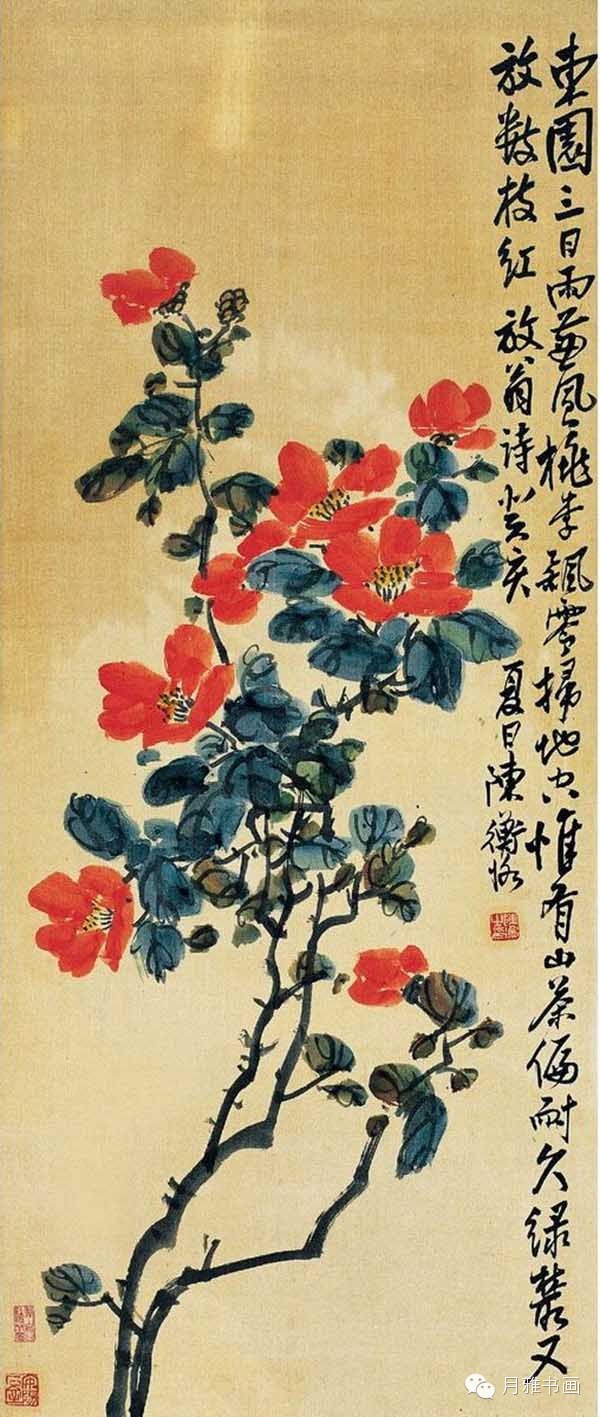 東園三日雨兼風桃李飄零掃地空惟有山茶偏耐久綠叢又
放數枝紅 放翁詩 癸亥 夏日陳衡恪
月雅书画